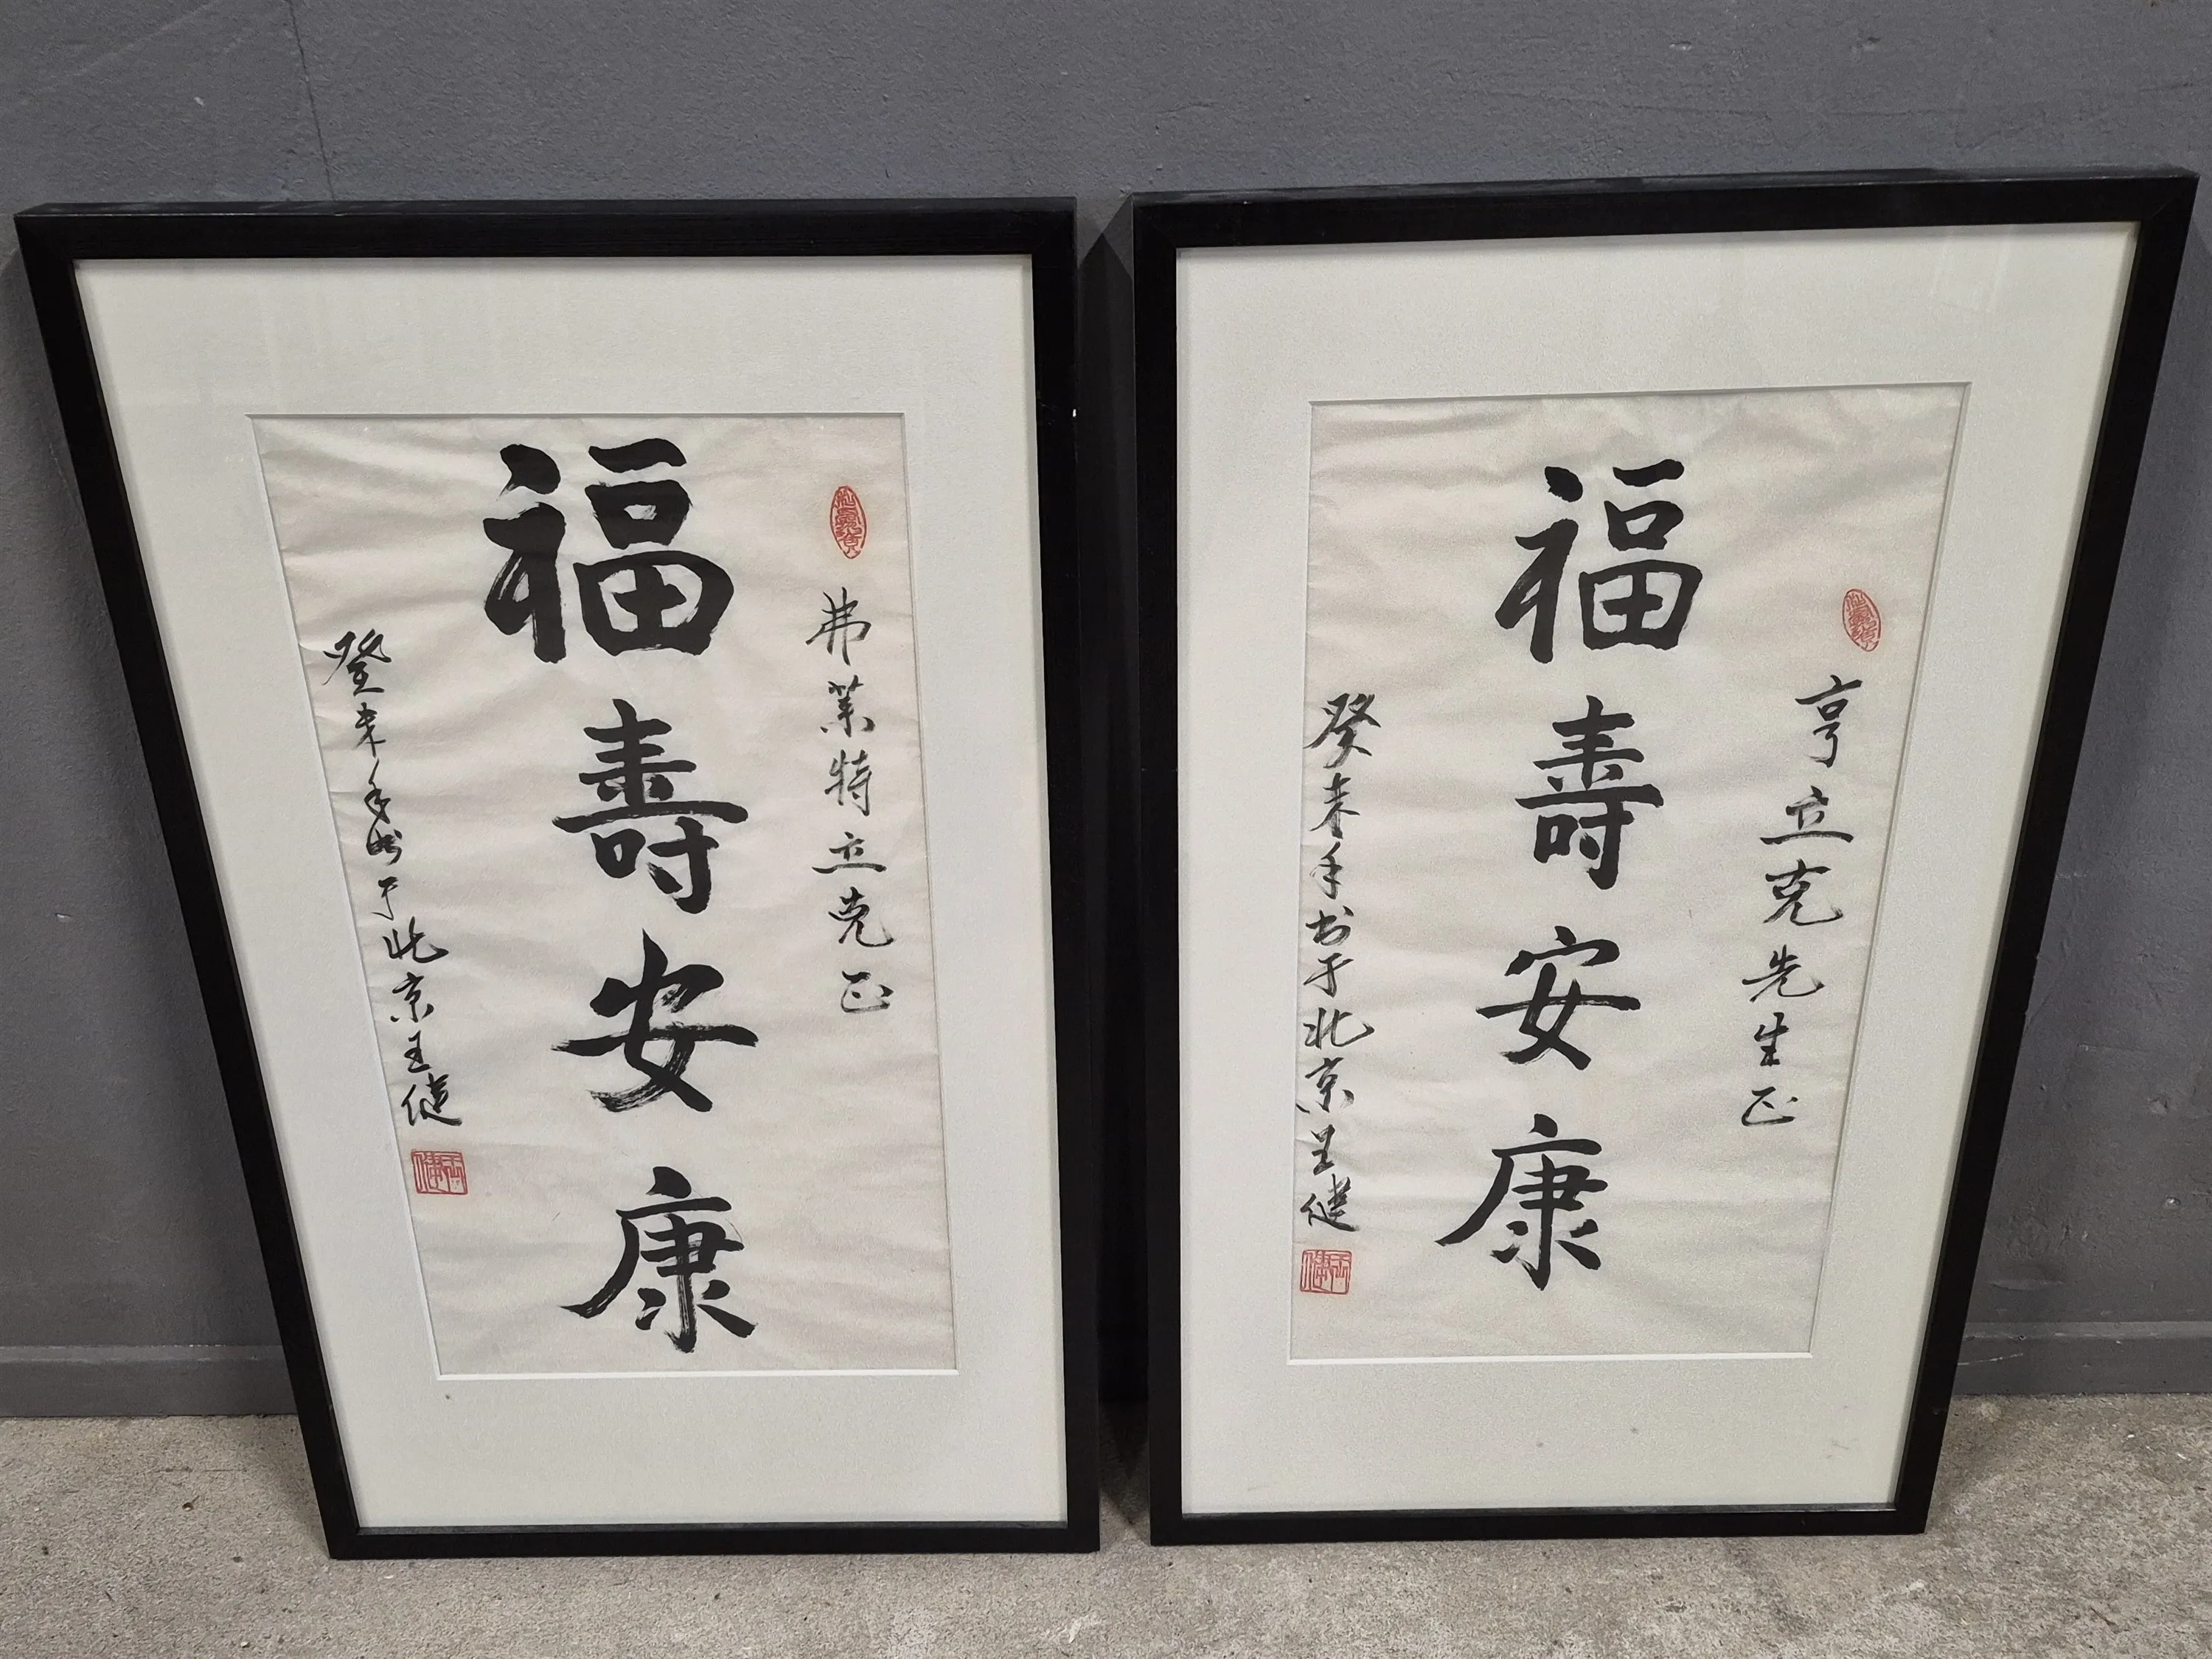 福壽安康
弗莱特立克正
癸未年书于北京王健
福壽安康
亨立克先生正
癸未年书于北京王健